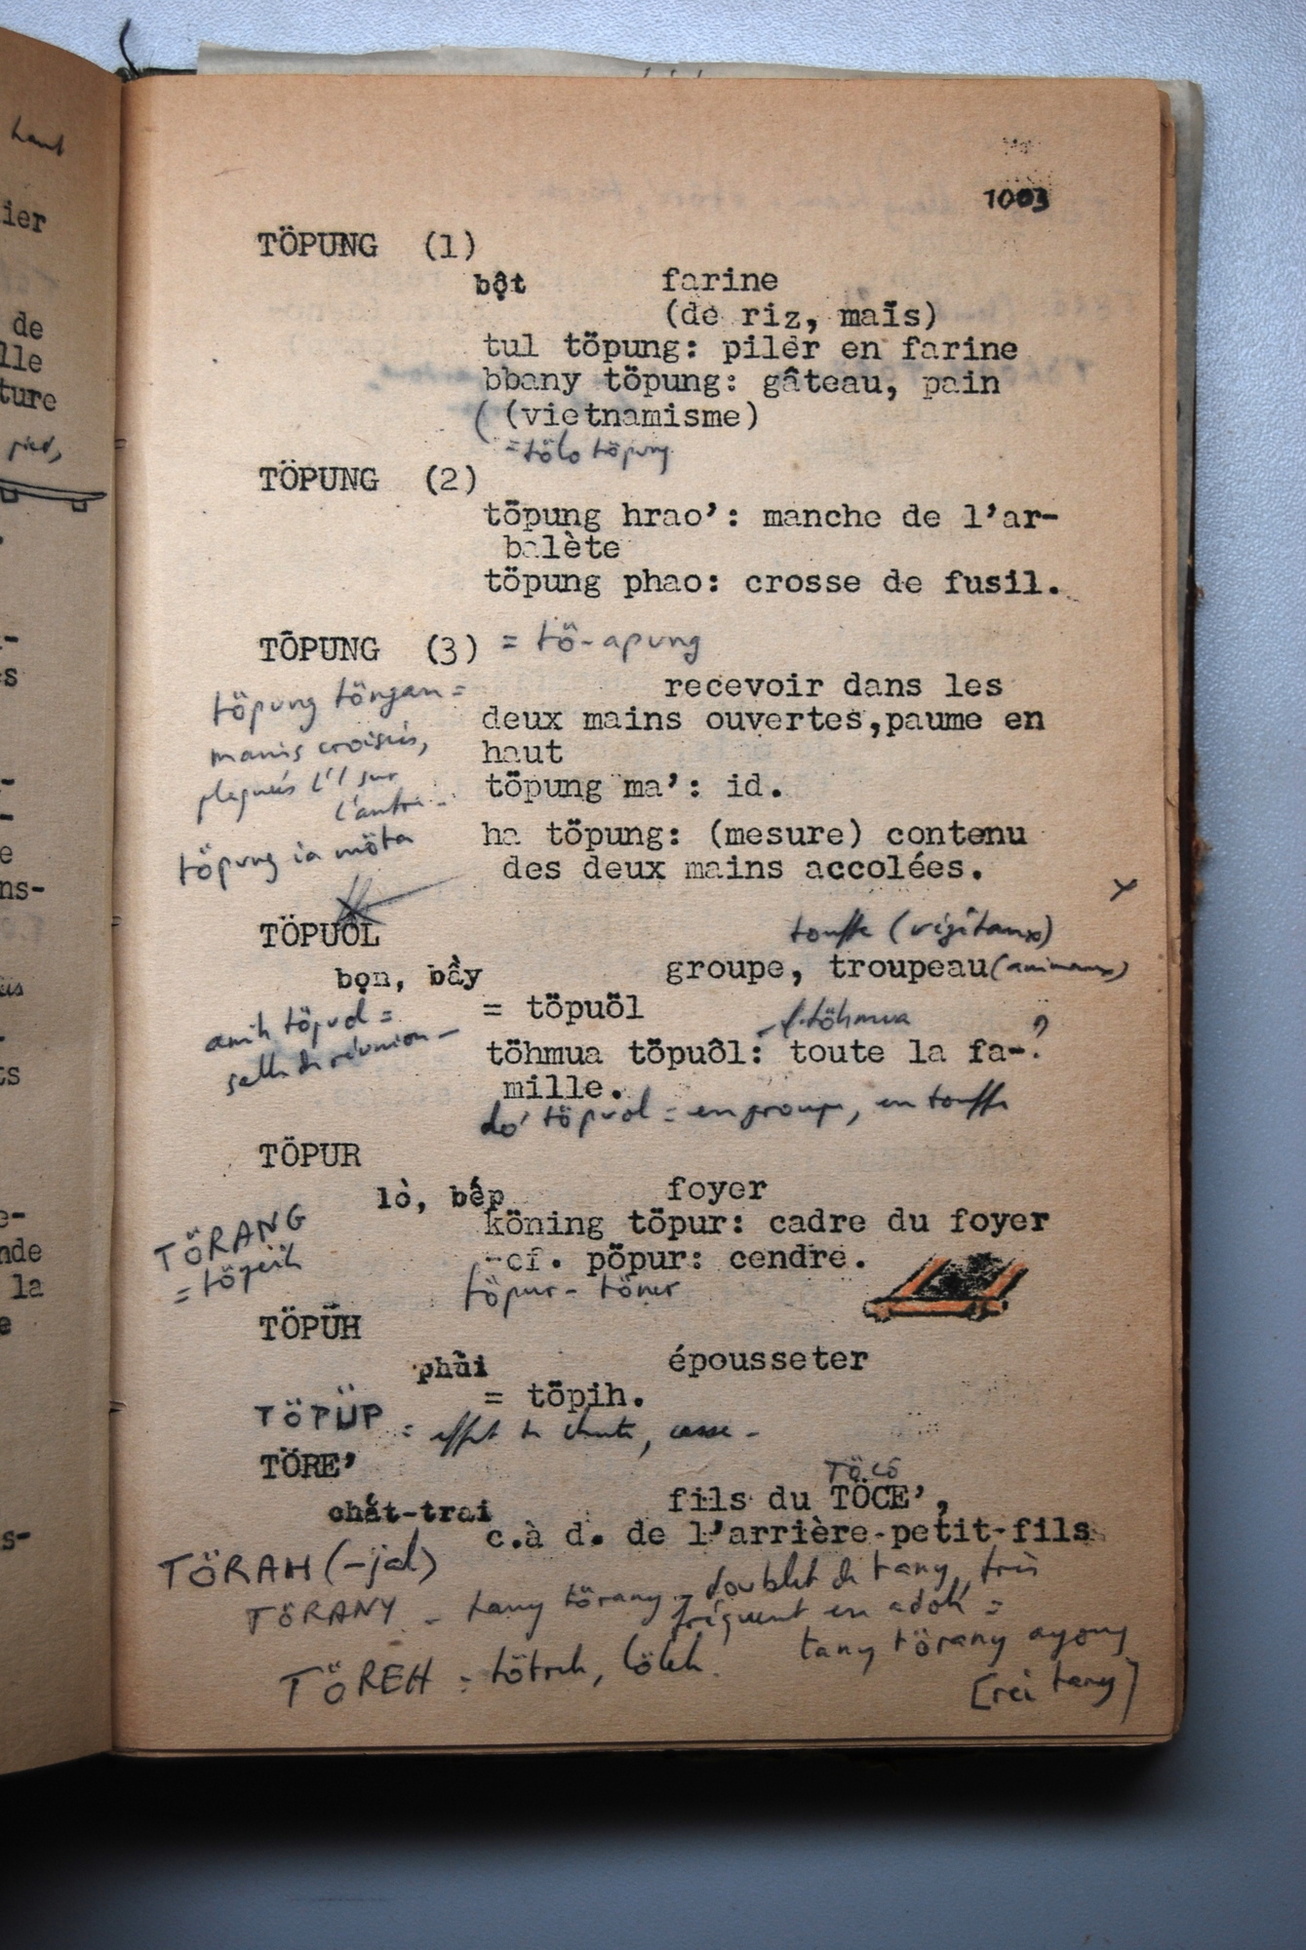 1003
TÖPUNG (1)
bột farine
(de riz, maïs)
tul töpung: piler en farine
bbany töpung: gâteau, pain
( (vietnamisme)
= tölo töpung
TÖPUNG (2)
töpung hrao’: manche de l’ar-
balète
töpung phao: crosse de fusil.
TÖPUNG (3) = tö-apung
recevoir dans les
deux mains ouvertes,paume en
haut
töpung ma’: id.
ha töpung: (mesure) contenu
des deux mains accolées.
töpung töngan =
mains croisées,
plaquées l'1 sur
l'autre
töpung ia möta
TÖPUÔL touffe (végétaux)
bọn, bầy groupe, troupeau (animaux)
= töpuöl
töhmua
töhmua töpuôl: toute la fa- ?
mille.
dö' töpuol = en groupe, en touffe
anih töpuol =
salle de réunion -
TÖPUR
lò, bếp foyer
köning töpur: cadre du foyer
-cf. pöpur: cendre.
töpur - töner
TÖRANG
TÖPÜH
phủi épousseter
= töpih.
TÖPÜP = effet de chute, casse -
TÖRE’ TÖCÔ
chắt-trai fils du TÖCE’,
c.à d. de l’arrière-petit-fils
TÖRAH (-jal)
TÖRANY - tany törany - doublet de tany, très
fréquent en adoh =
tany törany ayong
[rei tany]
TÖREH =
haut
ier
de
lle
ture
pied,
s
e
ns-
ts
e-
nde
la
e
s-